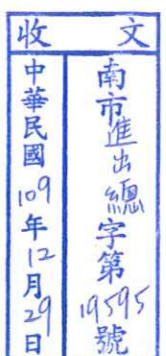 收文
南市進出總字第19595號
中華民國109年12月29日